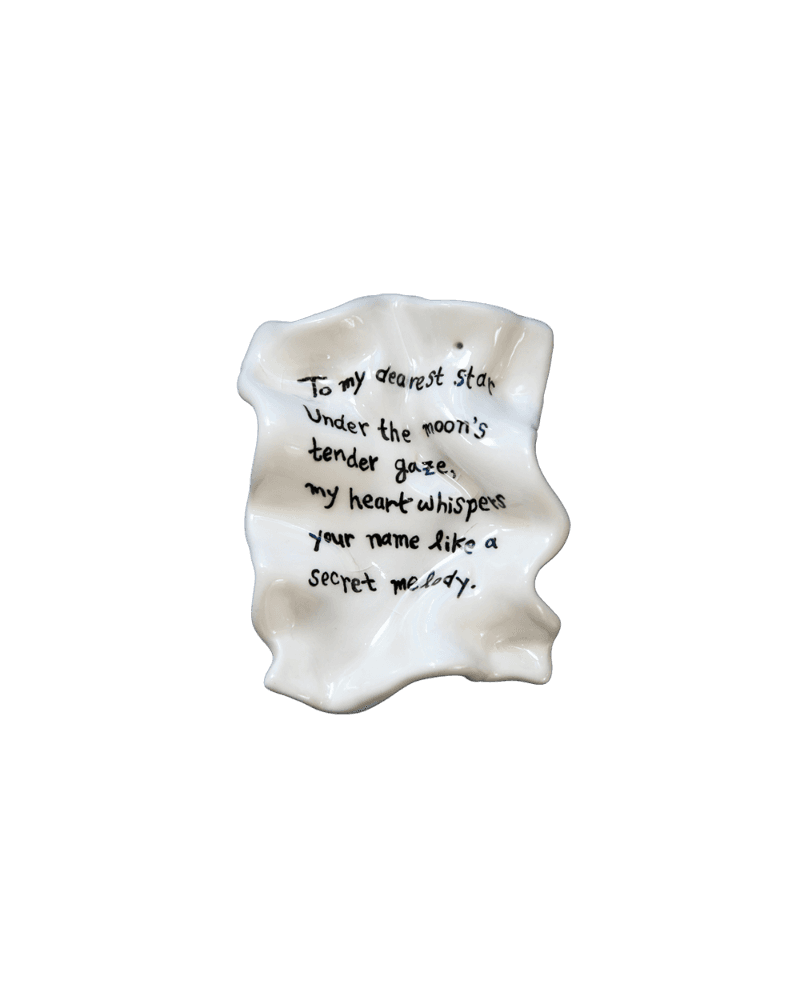 To my dearest star
Under the moon's
tender gaze,
my heart whispers
your name like a
secret melody.